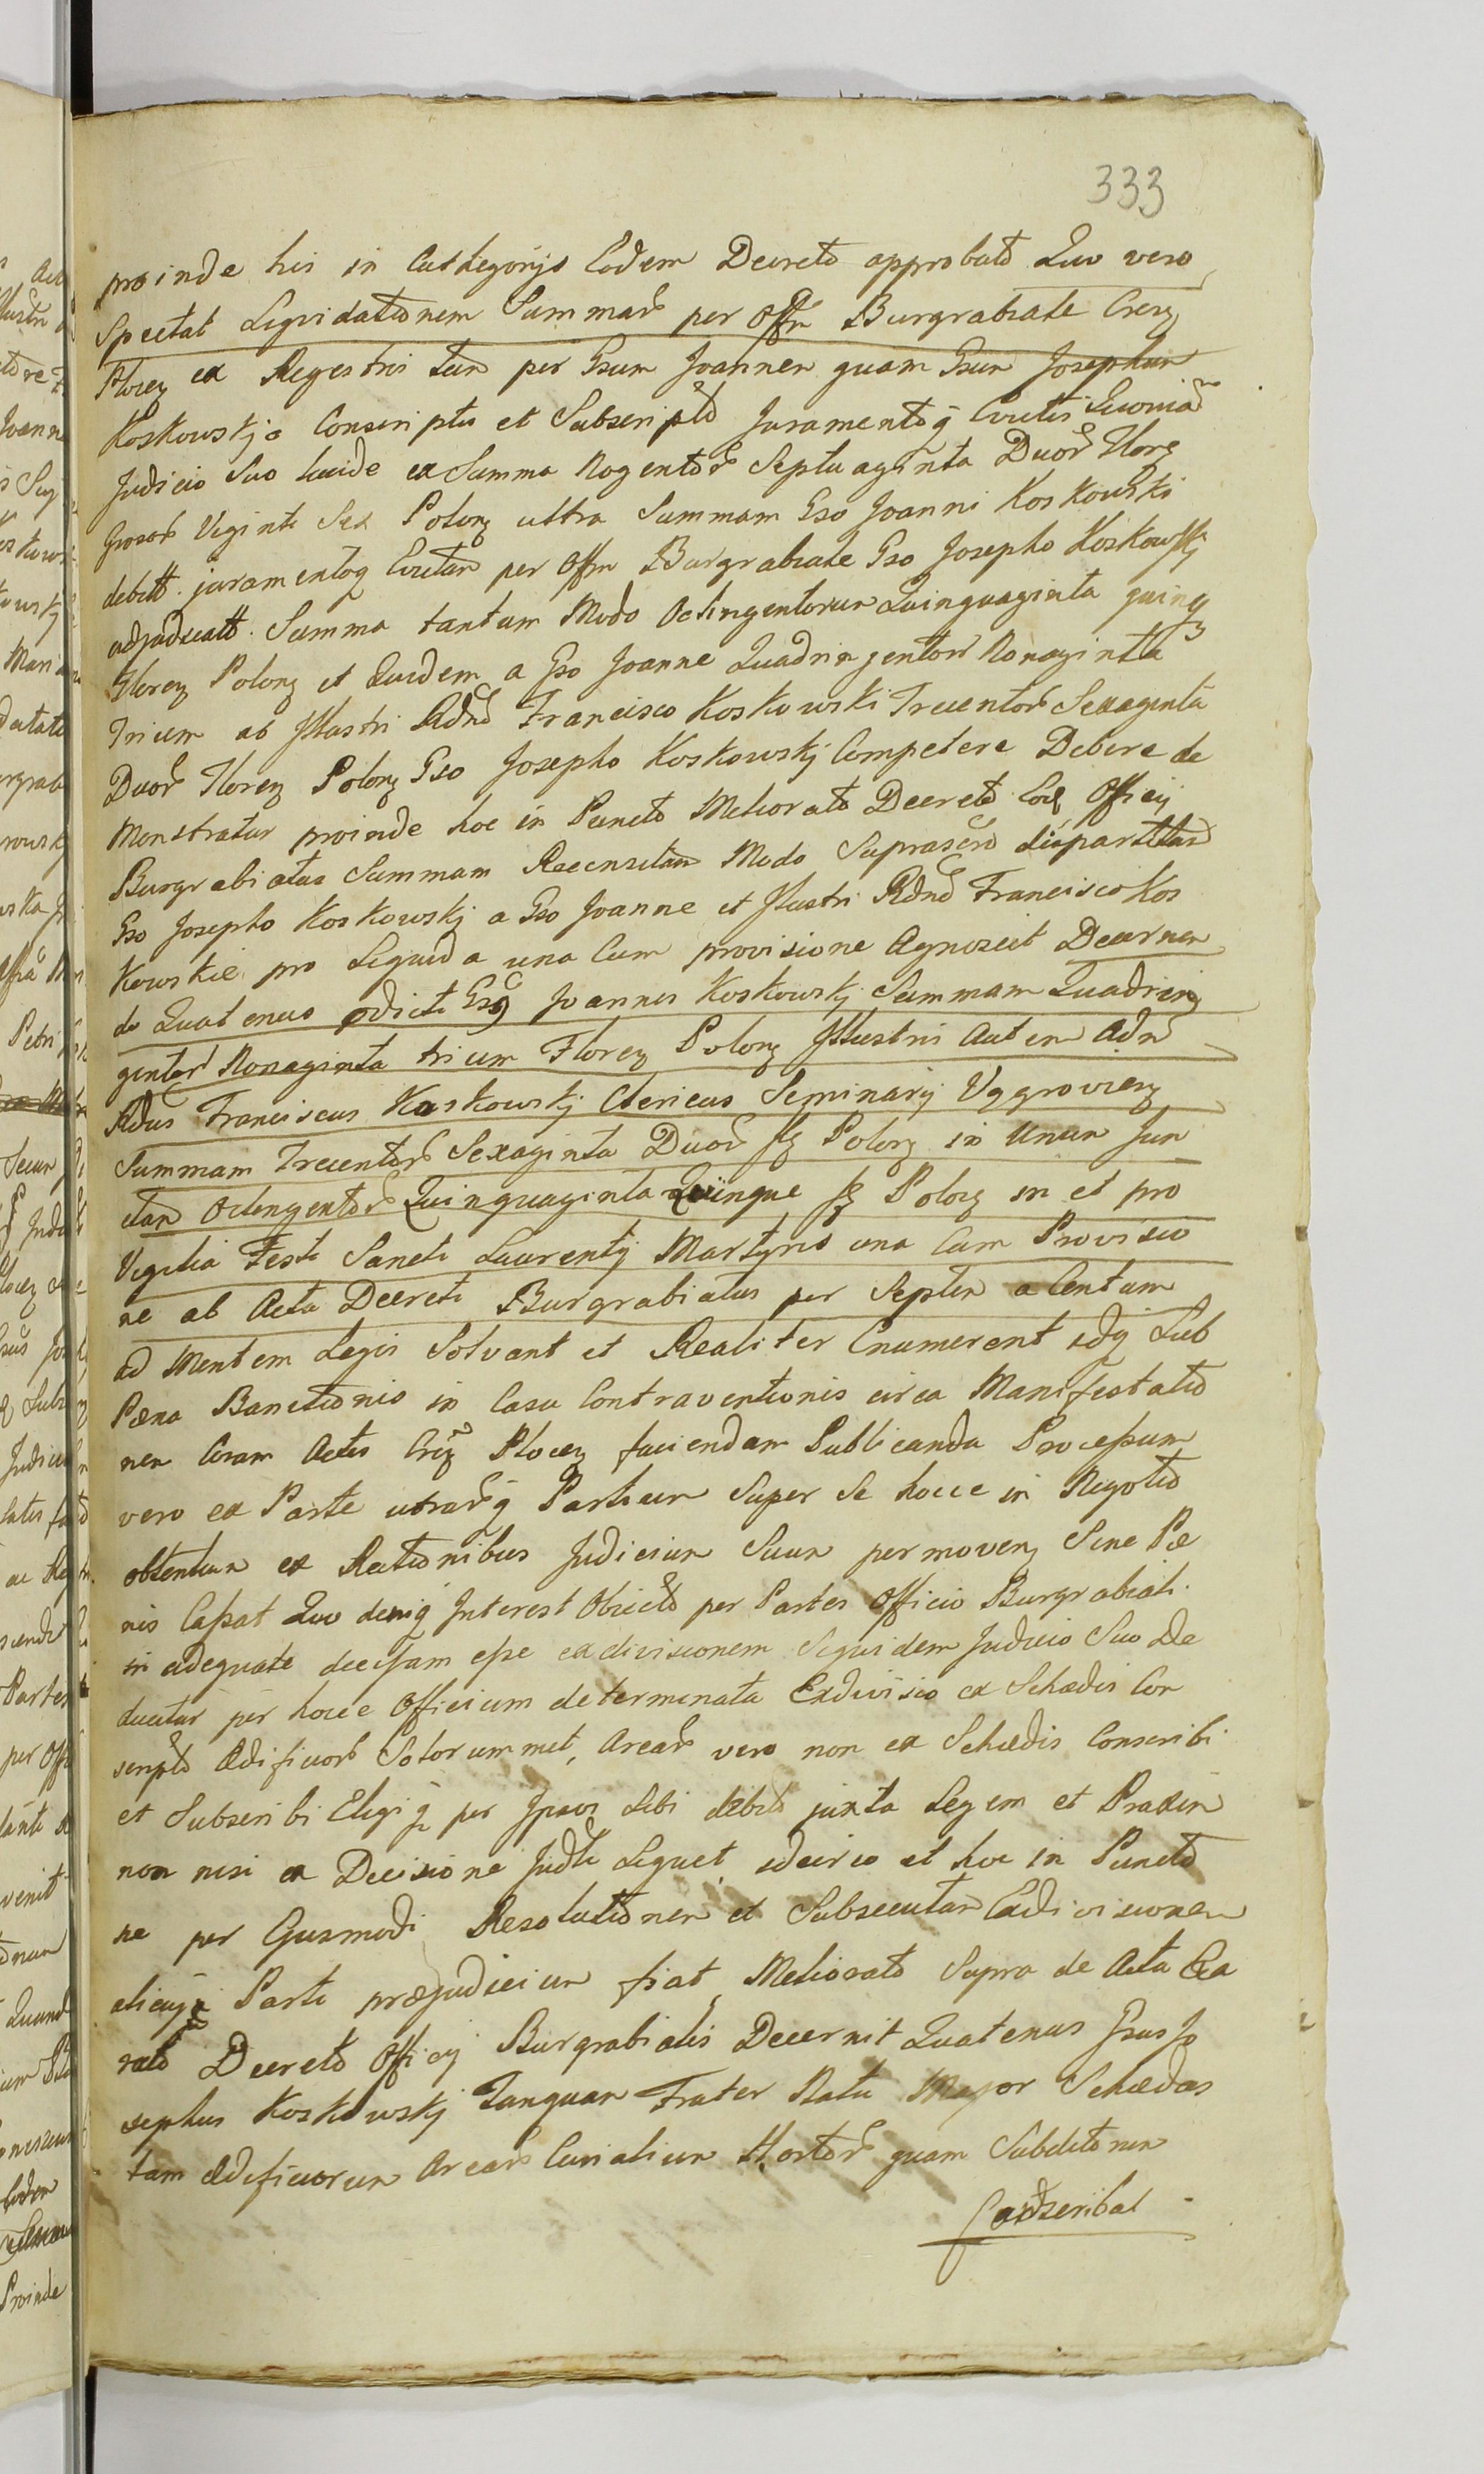 333
proinde his in Cathegorijs Eodem Decreto approbato Quo vero
Spectat Liquidationem Summar per Offm Burgrabiale Cresz
Plocen ex Regestris tum per Gsum Joannem quam Gsum Josephum
Koskowskje Conscriptis et Subscripto Juramentoq Evictis
Judicio Suo lucide ex Summa Nogentor Septuaginta Duor Floren
Grosor Viginti Sex Polon ultra Summam Gso Joanni Koskowski
debitt. juramentoq Evictam per Offm Burgrabiale Gso Josepho Koskowskj
adjudicatt. Summa tantum Modo Octingentorum Quinquaginta quinq
Floren Polon et Quidem a Gso Joanne Quadringentor Nonaginta
Trium ab Illustri Rdno Francisco Koskowski Trecentor Sexaginta
Duor Floren Polon Gso Josepho Koskowskj Competere Debere de
Monstratur proinde hoc in Puncto Meliorato Decreto Eod Officij
Burgrabiatus Summam Recensitam Modo Suprascro dispartitam
Gso Josepho Koskowskj a Gso Joanne et Illustri Rdno Francisco Kos
Kowskie pro Liquida una Cum provisione Agnoscit Decernen
do Quatenus pdicti Gsus Joannes Koskowskj Summam Quadrin
gentor Nonaginta trium Floren Polon Illustri Autem Adm
Rdus Franciscus Koskowskj Clericus Seminarij Uggrovien
Summam Trecentor Sexaginta Duor fl Polon in Unum Jun
ctam Octingentor Quinquaginta Quinque fl Polon in et pro
Vigilia Festi Sancti Laurentij Martyris una Cum Provisio
ne ab Acta Decreti Burgrabiatus per Septem a Centum
ad Mentem Legis Solvant et Realiter Enumerent idq Sub
Pæna Banctionis in Casu Contraventionis circa Manifestatio
nem Coram Actis Crz Plocen faciendam Publicanda Processum
vero ex Parte utrarq Partium Super Se hocce in Negotio
obtentum ex Rationibus Judicium Suum permoven Sine Pæ
nis Cassat Quo deniq Interest Obiecto per Partes Officio Burgrabiali
in adequate decisam esse exdivisionem Siquidem Judicio Suo De
ducitur per hocce Officium determinata Exdivisio ex Schædis Con
scripto Ædificior Solorummet, Arear vero non ex Schædis Conscribi
et Subscribi Eligiq per Ipsos Sibi debito juxta Legem et Praxim
non nisi ex Decisione Judli Liquet idcirco et hoc in Puncto
ne per Ejusmodi Resolutionem et Subsecutam Exdivisionem
alicujq Parti præjudicium fiat Meliorato Supra de Acta Exa
rato Decreto Officij Burgrabialis Decernit Quatenus Gsus Jo
sephus Koskowskj Tanquam Frater Natu Major Schædas
tam Ædificiorum Arear Curialium Hortor quam Subditorum
Conscribat